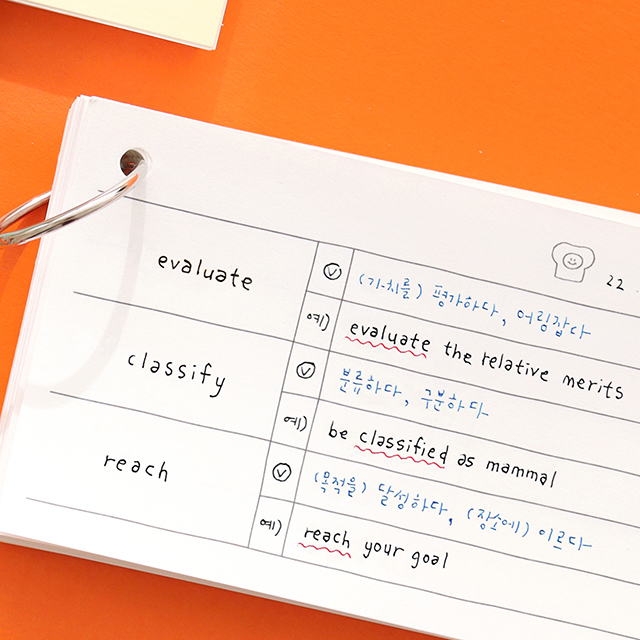 22
evaluate ⓥ (가치를) 평가하다, 어림잡다
예) evaluate the relative merits
classify ⓥ 분류하다, 구분하다
예) be classified as mammal
reach ⓥ (목적을) 달성하다, (장소에) 이르다
예) reach your goal